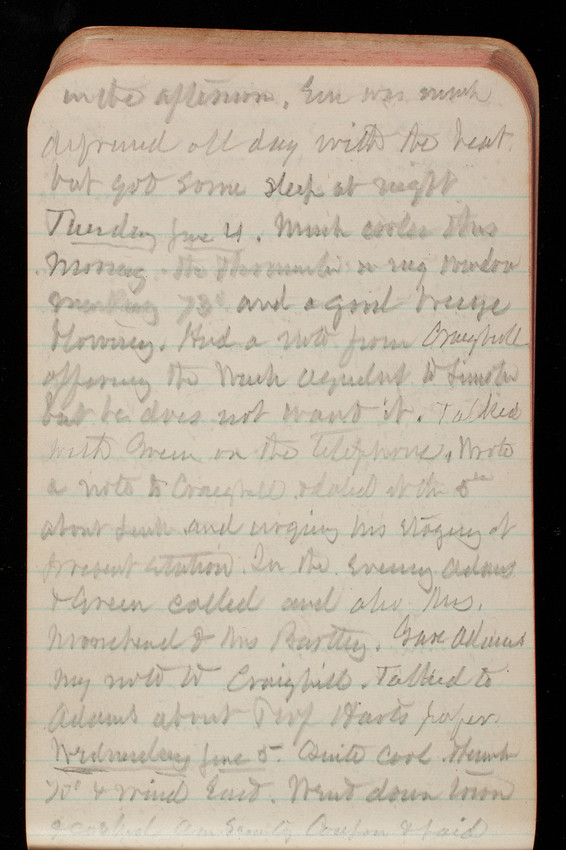 in the afternoon. Em was much
depressed all day with the heat
but got some sleep at night
Tuesday June 4. Much cooler this
morning. the thermometer in my window
marking 73° and a good breeze
blowing. Had a note from Craighill
offering the Wash aqueduct to
but he does not want it. Talked
with Green on the telephone. Wrote
a note to Craighill dated it the 5th
about and urging his staying at
present station In the evening Adams
& Green called and also Mrs.
Morehead & Mrs Bartley. Gave Adams
my note to Craighill. Talked to
Adams about Prof paper.
Wednesday June 5. Quite cool.
70° & wind East. Went down town
& cashed Coupon & paid